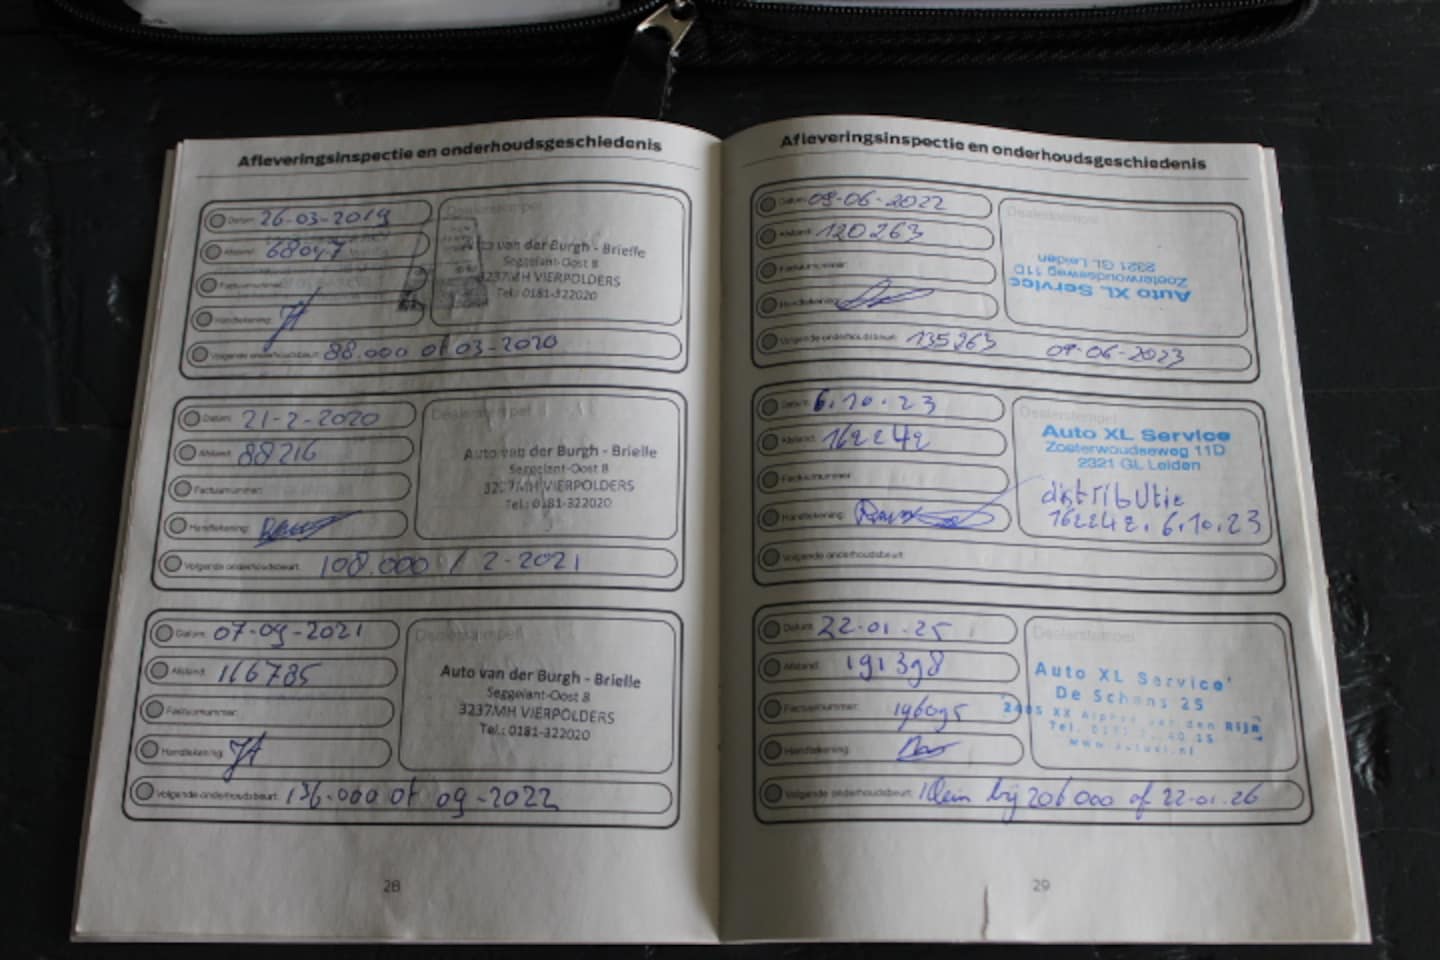 Afleveringsinspectie en onderhoudsgeschiedenis
Datum: 26-03-2019
Afstand: 68047
Factuurnummer:
Handtekening:
Volgende onderhoudsbeurt: 88.000 of 03-2020
Dealerstempel
Auto van der Burgh - Brielle
Seggelant-Oost 8
3237MH VIERPOLDERS
Tel.: 0181-322020
Datum: 21-2-2020
Afstand: 88216
Factuurnummer:
Handtekening:
Volgende onderhoudsbeurt: 108.000 / 2-2021
Dealerstempel
Auto van der Burgh - Brielle
Seggelant-Oost 8
3237MH VIERPOLDERS
Tel.: 0181-322020
Datum: 07-09-2021
Afstand: 116785
Factuurnummer:
Handtekening:
Volgende onderhoudsbeurt: 136.000 of 09-2022
Dealerstempel
Auto van der Burgh - Brielle
Seggelant-Oost 8
3237MH VIERPOLDERS
Tel.: 0181-322020
28
Afleveringsinspectie en onderhoudsgeschiedenis
Datum: 09-06-2022
Afstand: 120263
Factuurnummer:
Handtekening:
Volgende onderhoudsbeurt: 135263 09-06-2023
Dealerstempel
Auto XL Service
Zoeterwoudseweg 11D
2321 GL Leiden
Datum: 6.10.23
Afstand: 162242
Factuurnummer:
Handtekening:
Volgende onderhoudsbeurt:
Dealerstempel
Auto XL Service
Zoeterwoudseweg 11D
2321 GL Leiden
distributie
162242. 6.10.23
Datum: 22-01-25
Afstand: 191398
Factuurnummer: 196095
Handtekening:
Volgende onderhoudsbeurt: Klein bij 206000 of 22-01-26
Dealerstempel
Auto XL Service
De Schans 25
2405 XX Alphen van den Rijn
Tel.
www.autoxl.nl
29